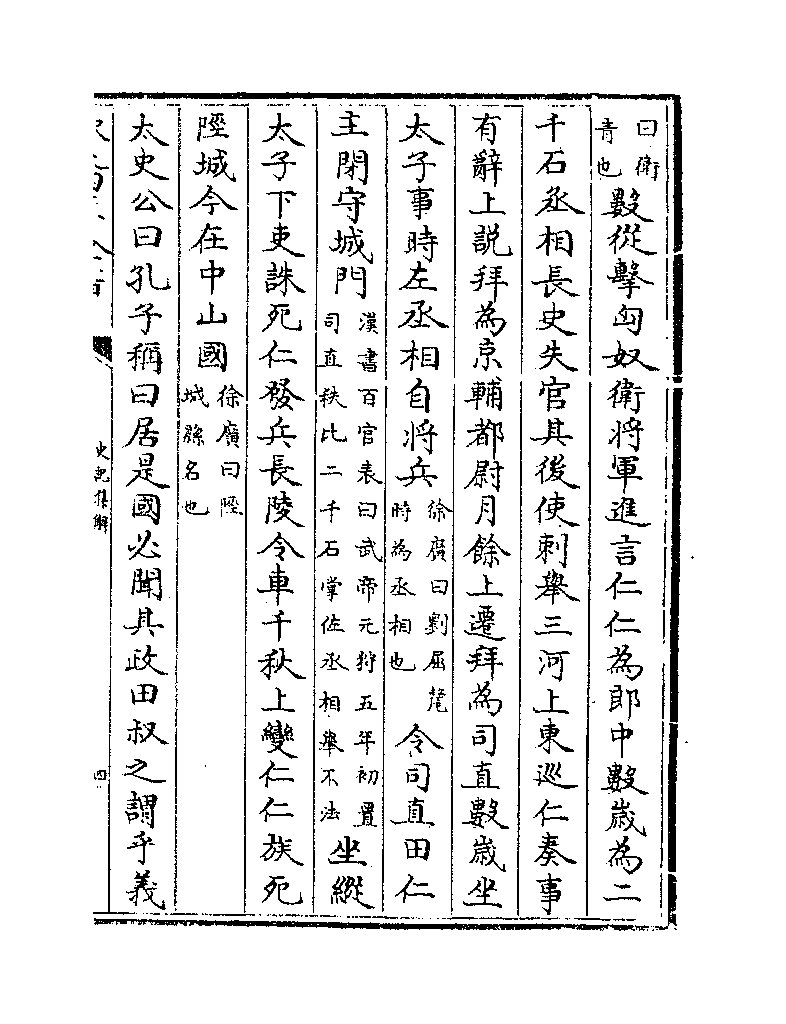 曰衛青也數從擊匈奴衛將軍進言仁仁為郎中數歲為二
千石丞相長史失官其後使刺舉三河上東巡仁奏事
有辭上說拜為京輔都尉月餘上遷拜為司直數歲坐
太子事時左丞相自將兵徐廣曰劉屈氂時為丞相也令司直田仁
主閉守城門漢書百官表曰武帝元狩五年初置司直秩比二千石掌佐丞相舉不法坐縱
太子下吏誅死仁發兵長陵令車千秋上變仁仁族死
陘城今在中山國徐廣曰陘城縣名也
太史公曰孔子稱曰居是國必聞其政田叔之謂乎義
史記集解
四